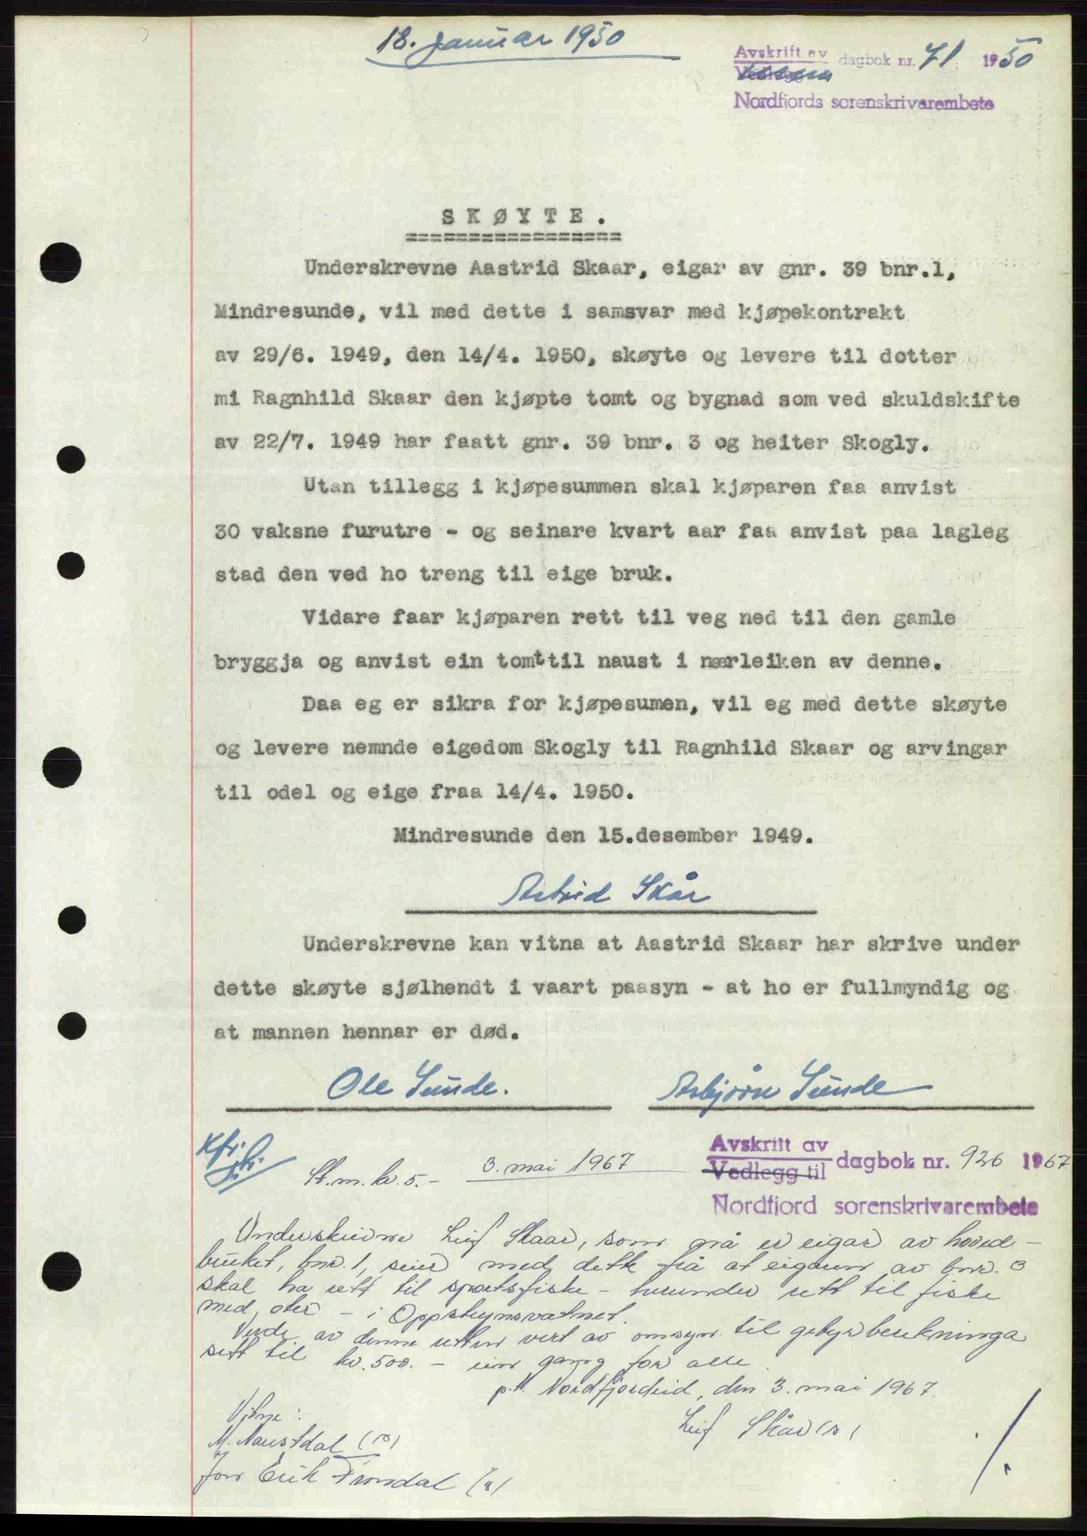 18. januar 1950
Avskrift av
Vedlegg dagbok nr. 71 1950
Nordfjords sorenskrivarembete
SKØYTE.
Underskrevne Aastrid Skaar, eigar av gnr. 39 bnr.1,
Mindresunde, vil med dette i samsvar med kjøpekontrakt
av 29/6. 1949, den 14/4. 1950, skøyte og levere til dotter
mi Ragnhild Skaar den kjøpte tomt og bygnad som ved skuldskifte
av 22/7. 1949 har faatt gnr. 39 bnr. 3 og heiter Skogly.
Utan tillegg i kjøpesummen skal kjøparen faa anvist
30 vaksne furutre - og seinare kvart aar faa anvist paa lagleg
stad den ved ho treng til eige bruk.
Vidare faar kjøparen rett til veg ned til den gamle
bryggja og anvist ein tomt til naust i nærleiken av denne.
Daa eg er sikra for kjøpesumen, vil eg med dette skøyte
og levere nemnde eigedom Skogly til Ragnhild Skaar og arvingar
til odel og eige fraa 14/4. 1950.
Mindresunde den 15.desember 1949.
Astrid Skår
Underskrevne kan vitna at Aastrid Skaar har skrive under
dette skøyte sjølhendt i vaart paasyn - at ho er fullmyndig og
at mannen hennar er død.
Ole Sunde. Asbjörn Sunde
St.m. kr. 5.- 3. mai 1967
Avskrift av
Vedlegg til dagbok nr. 926 1967
Nordfjord sorenskrivarembete
Underskrivne Leif Skaar, som nå er eigar av hoved-
bruket, bnr. 1, seier med dette frå at eigaren av bnr. 3
skal ha rett til sportsfiske - herunder rett til fiske
med oter - i Oppstrynsvatnet.
Verdi av denne retten vert av omsyn til gebyrberekninga
sett til kr. 500.- ein gang for alle.
p.t. Nordfjordeid, den 3. mai 1967.
Leif Skår (s)
M. Naustdal (s)
Erik (s)